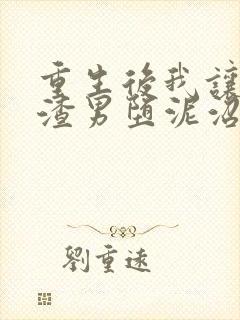 重生後我讓
渣男墮泥沼
劉重遠